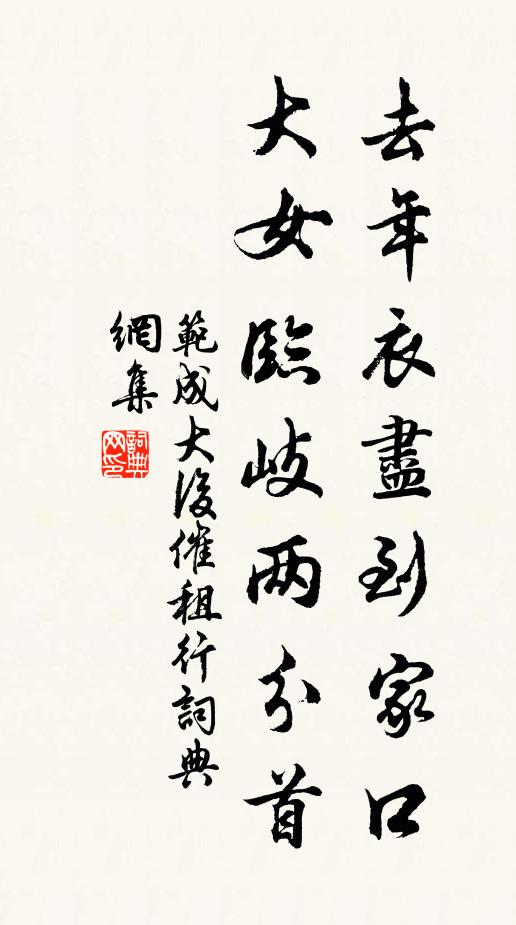 去年衣盡到家口
大女臨岐兩分首
範成大後催租行詞典
網集
詞典
网印